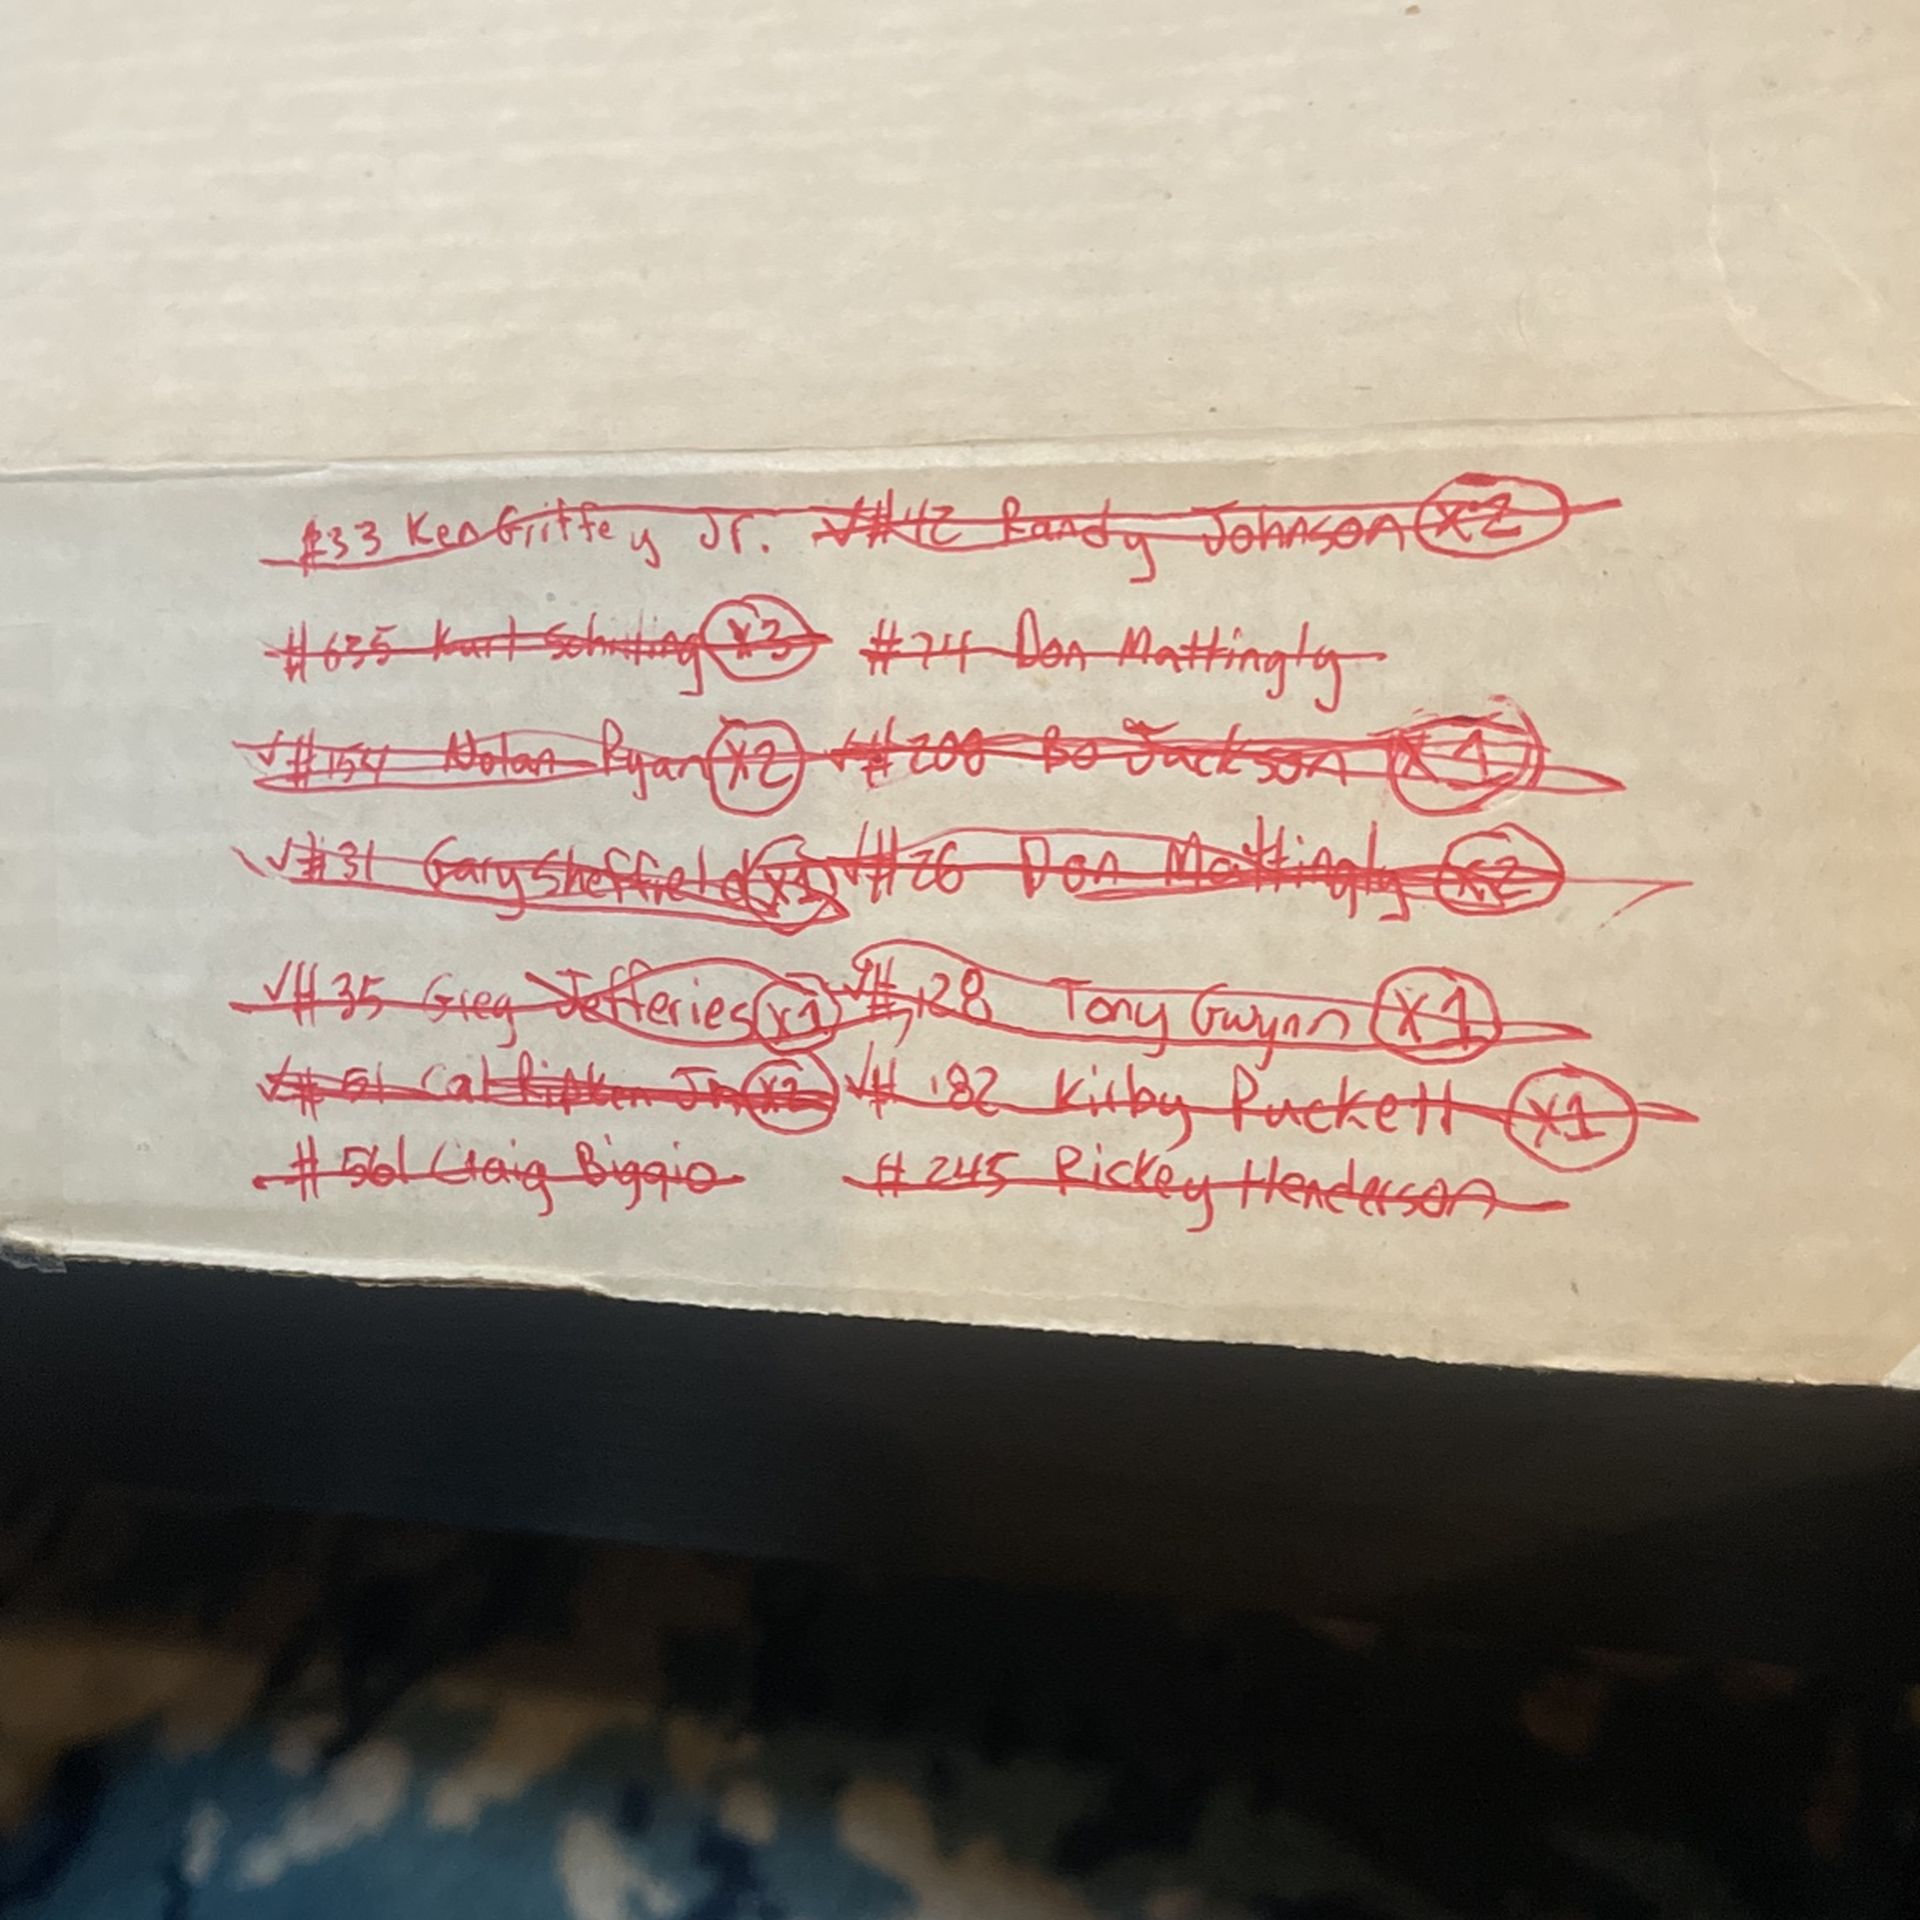 #33 Ken Griffey Jr. ✓#42 Randy Johnson x2
#635 Kurt Schilling x3 #74 Don Mattingly
✓#154 Nolan Ryan x2 ✓#200 Bo Jackson x1
✓#31 Gary Sheffield ✓#26 Don Mattingly x2
✓#35 Greg Jefferies x1 ✓#128 Tony Gwynn x1
✓#51 Cal Ripken Jr. x2 ✓#182 Kirby Puckett x1
#561 Craig Biggio #245 Rickey Henderson